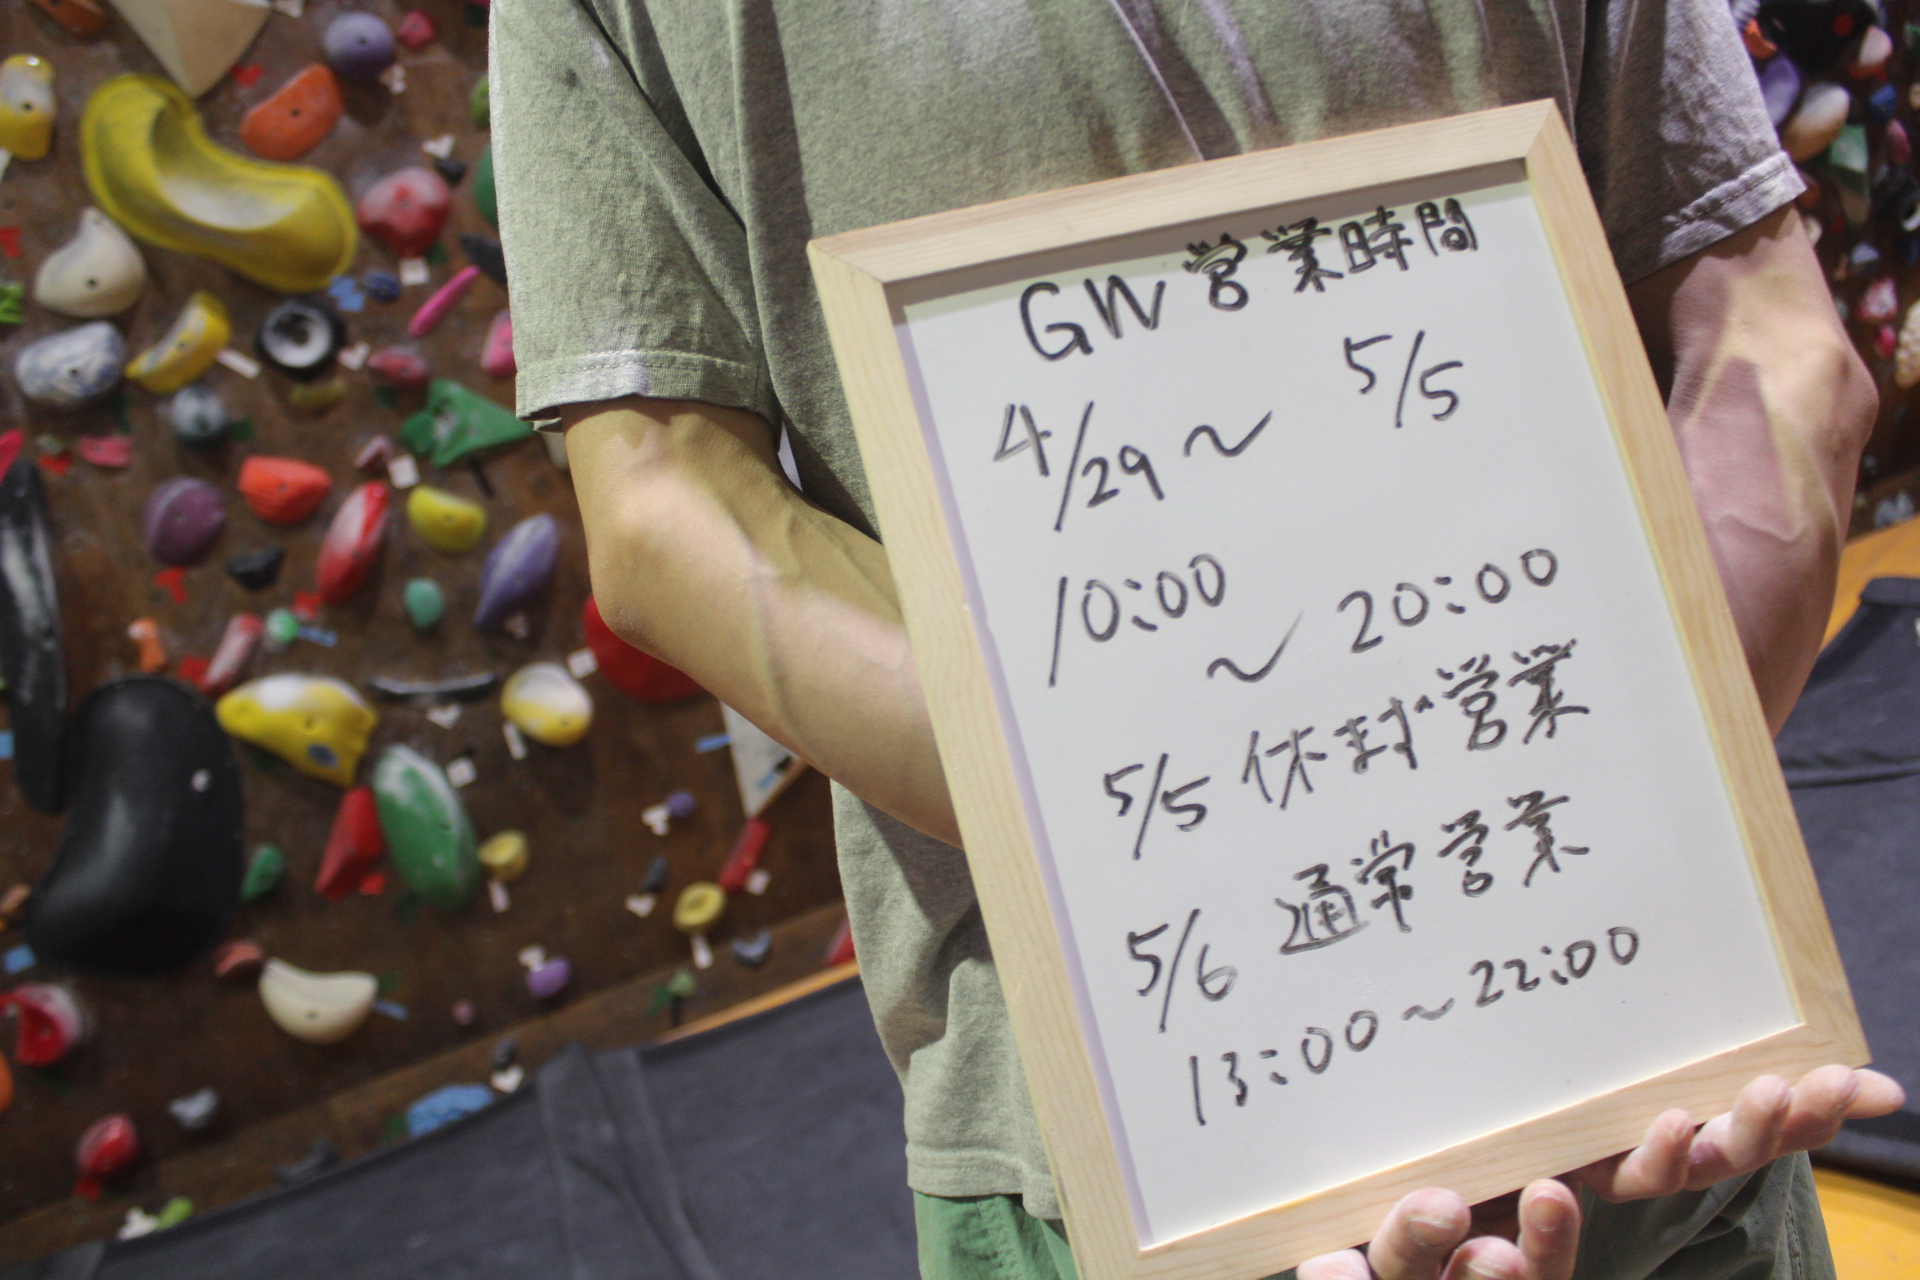 GW 営業時間
4/29 〜 5/5
10:00
〜 20:00
5/5 休まず営業
5/6 通常営業
13:00〜22:00